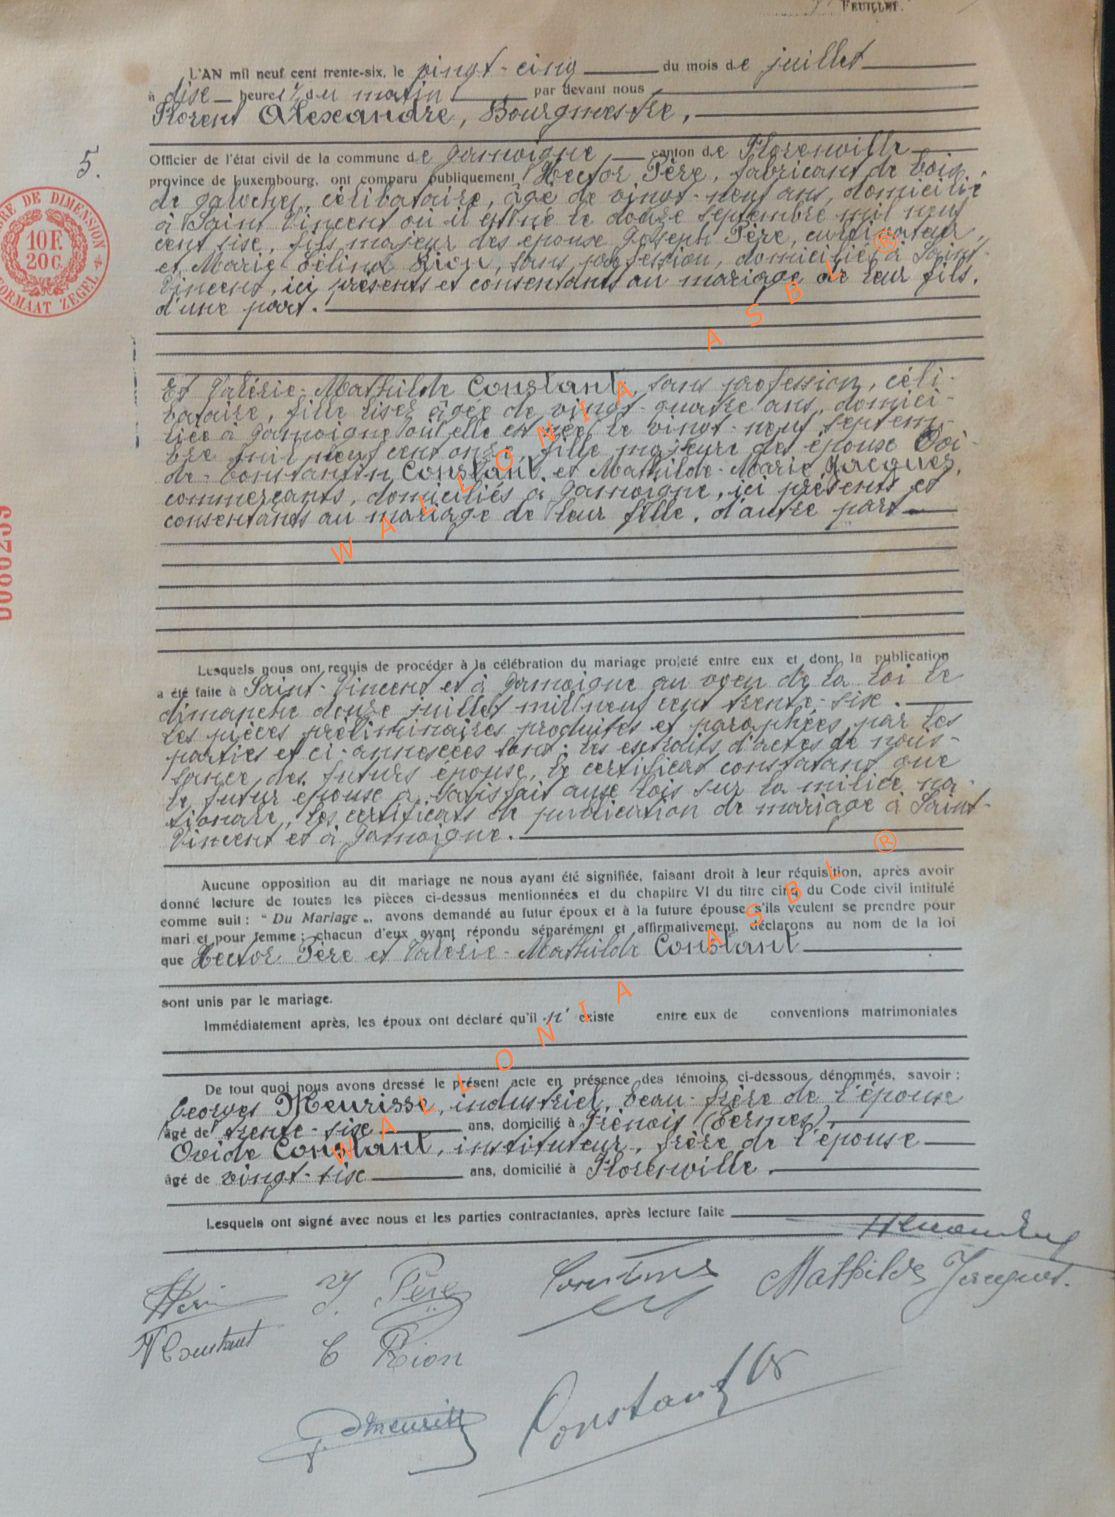 FEUILLET.
L'AN mil neuf cent trente-six, le vingt-cinq du mois de juillet
à dix heures du matin par devant nous
Florent Alexandre, Bourgmestre,
Officier de l'état civil de la commune de Jamoigne canton de Florenville
5.
province de Luxembourg, ont comparu publiquement Hector Père, fabricant de bois
de galoches, célibataire, âgé de vingt-neuf ans, domicilié
à Saint Vincent où il est né le douze septembre mil neuf
cent six, fils majeur des époux Joseph Père, cultivateur,
et Marie Célina Rion, sans profession, domiciliés à Saint-
Vincent, ici présents et consentants au mariage de leur fils,
d'une part.
TIMBRE DE DIMENSION
10 F
20 C.
FORMAAT ZEGEL
Et Valérie-Mathilde Constant, sans profession, céli-
bataire, âgée de vingt-quatre ans, domici-
liée à Jamoigne où elle est née le vingt-neuf septem-
bre mil neuf cent onze, fille majeure des époux Ovi-
de-Constantin Constant et Mathilde-Marie Jacques,
commerçants, domiciliés à Jamoigne, ici présents et
consentants au mariage de leur fille, d'autre part
D086259
Lesquels nous ont requis de procéder à la célébration du mariage projeté entre eux et dont la publication
a été faite à Saint-Vincent et à Jamoigne au voeu de la loi le
dimanche douze juillet mil neuf cent trente-six.
Les pièces préliminaires produites et paraphées par les
parties et ci-annexées sont: les extraits d'actes de nais-
sance des futurs époux, le certificat constatant que
le futur époux a satisfait aux lois sur la milice na-
tionale, les certificats de publication de mariage à Saint-
Vincent et à Jamoigne.
Aucune opposition au dit mariage ne nous ayant été signifiée, faisant droit à leur réquisition, après avoir
donné lecture de toutes les pièces ci-dessus mentionnées et du chapitre VI du titre cinq du Code civil intitulé
comme suit : " Du Mariage „, avons demandé au futur époux et à la future épouse s'ils veulent se prendre pour
mari et pour femme ; chacun d'eux ayant répondu séparément et affirmativement, déclarons au nom de la loi
que Hector Père et Valérie-Mathilde Constant
sont unis par le mariage.
Immédiatement après, les époux ont déclaré qu'il n'existe entre eux de conventions matrimoniales
De tout quoi nous avons dressé le présent acte en présence des témoins ci-dessous dénommés, savoir :
Georges Meurisse, industriel, beau-frère de l'épouse
âgé de trente-six ans, domicilié à Frénois (Termes),
Ovide Constant, instituteur, frère de l'épouse
âgé de vingt-six ans, domicilié à Florenville
Lesquels ont signé avec nous et les parties contractantes, après lecture faite
J. Père
Mathilde Jacques.
V Constant
C Rion
G Meurisse
Constant Os
WALLONIA ASBL ®
WALLONIA ASBL ®